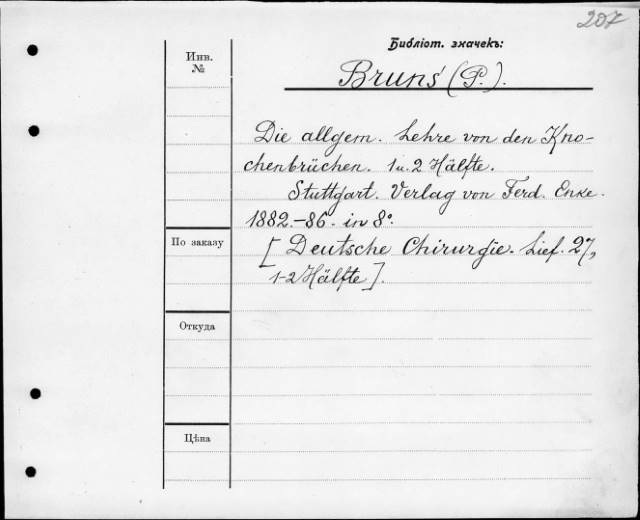 207
Библіот. значекъ:
Инв.
№
Bruns (P.).
Die allgem. Lehre von den Kno-
chenbrüchen. 1 u. 2 Hälfte.
Stuttgart. Verlag von Ferd. Enke.
1882.-86. in 8°.
По заказу
[Deutsche Chirurgie. Lief. 27,
1-2 Hälfte].
Откуда
Цѣна